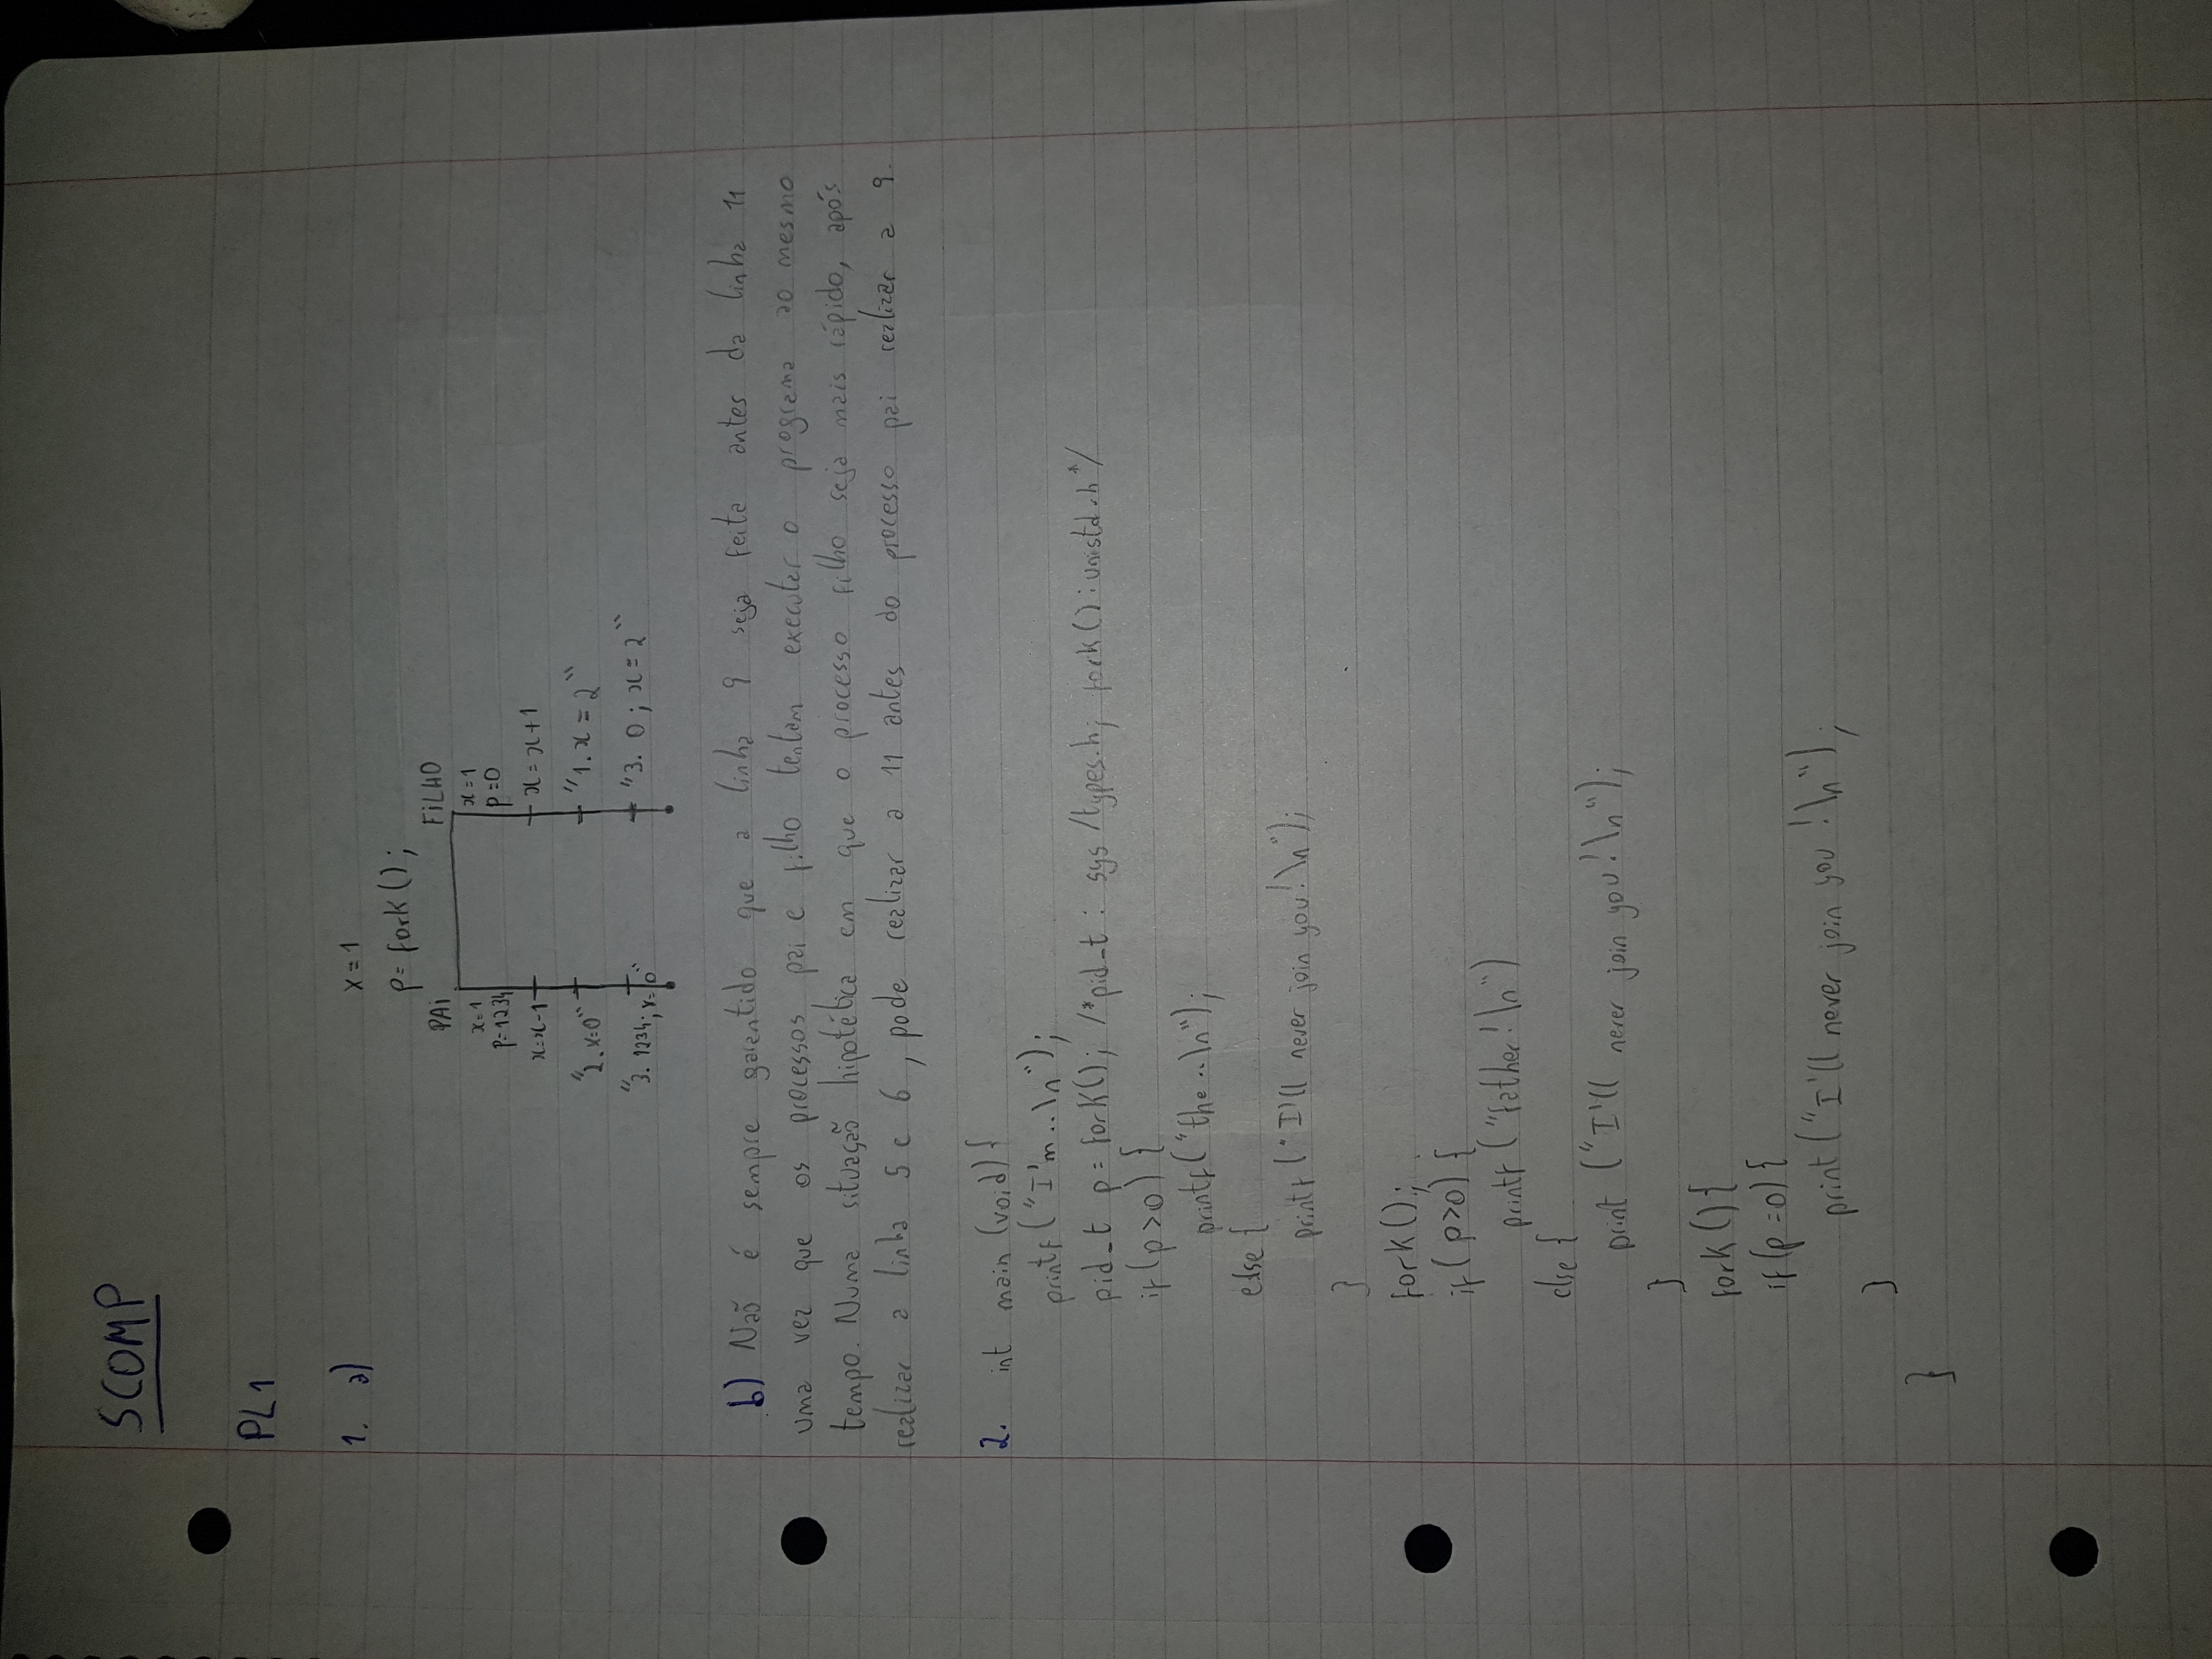 SCOMP
PL1
1. a)
x = 1
p = fork();
PAi FiLHO
x=1 x=1
p=1234 p=0
x=x-1 x = x+1
"2. x=0" "1. x = 2"
"3. 1234; x=0" "3. 0 ; x = 2"
b) Naõ é sempre garantido que a linha 9 seja feita antes da linha 11
uma vez que os processos pai e filho tentam executar o programa ao mesmo
tempo. Numa situaçaõ hipotética em que o processo filho seja mais rápido, após
realizar a linha 5 e 6, pode realizar a 11 antes do processo pai realizar a 9.
2. int main (void) {
printf ("I'm..\n");
pid_t p = fork(); /*pid_t : sys/types.h; fork() : unistd.h*/
if (p>0) {
printf ("the ..\n");
else {
printf ("I'll never join you!\n");
}
fork();
if (p>0) {
printf ("father!\n")
else {
print ("I'll never join you!\n");
}
fork () {
if (p =0) {
print ("I'll never join you !\n");
}
}